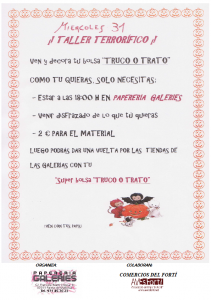 MIERCOLES 31
¡¡ TALLER TERRORÍFICO ¡¡
VEN Y DECORA TU BOLSA "TRUCO O TRATO"
COMO TU QUIERAS, SOLO NECESITAS:
- ESTAR A LAS 18:00 H EN PAPERERIA GALERIES
- VENIR DISFRAZADO DE LO QUE TU QUIERAS
- 2 € PARA EL MATERIAL
LUEGO PODRAS DAR UNA VUELTA POR LAS TIENDAS DE
LAS GALERIAS CON TU
"SUPER BOLSA "TRUCO O TRATO"
ORGANIZA
COLABORAN:
PAPERERIA
GALERIES
COMERCIOS DEL PORTI